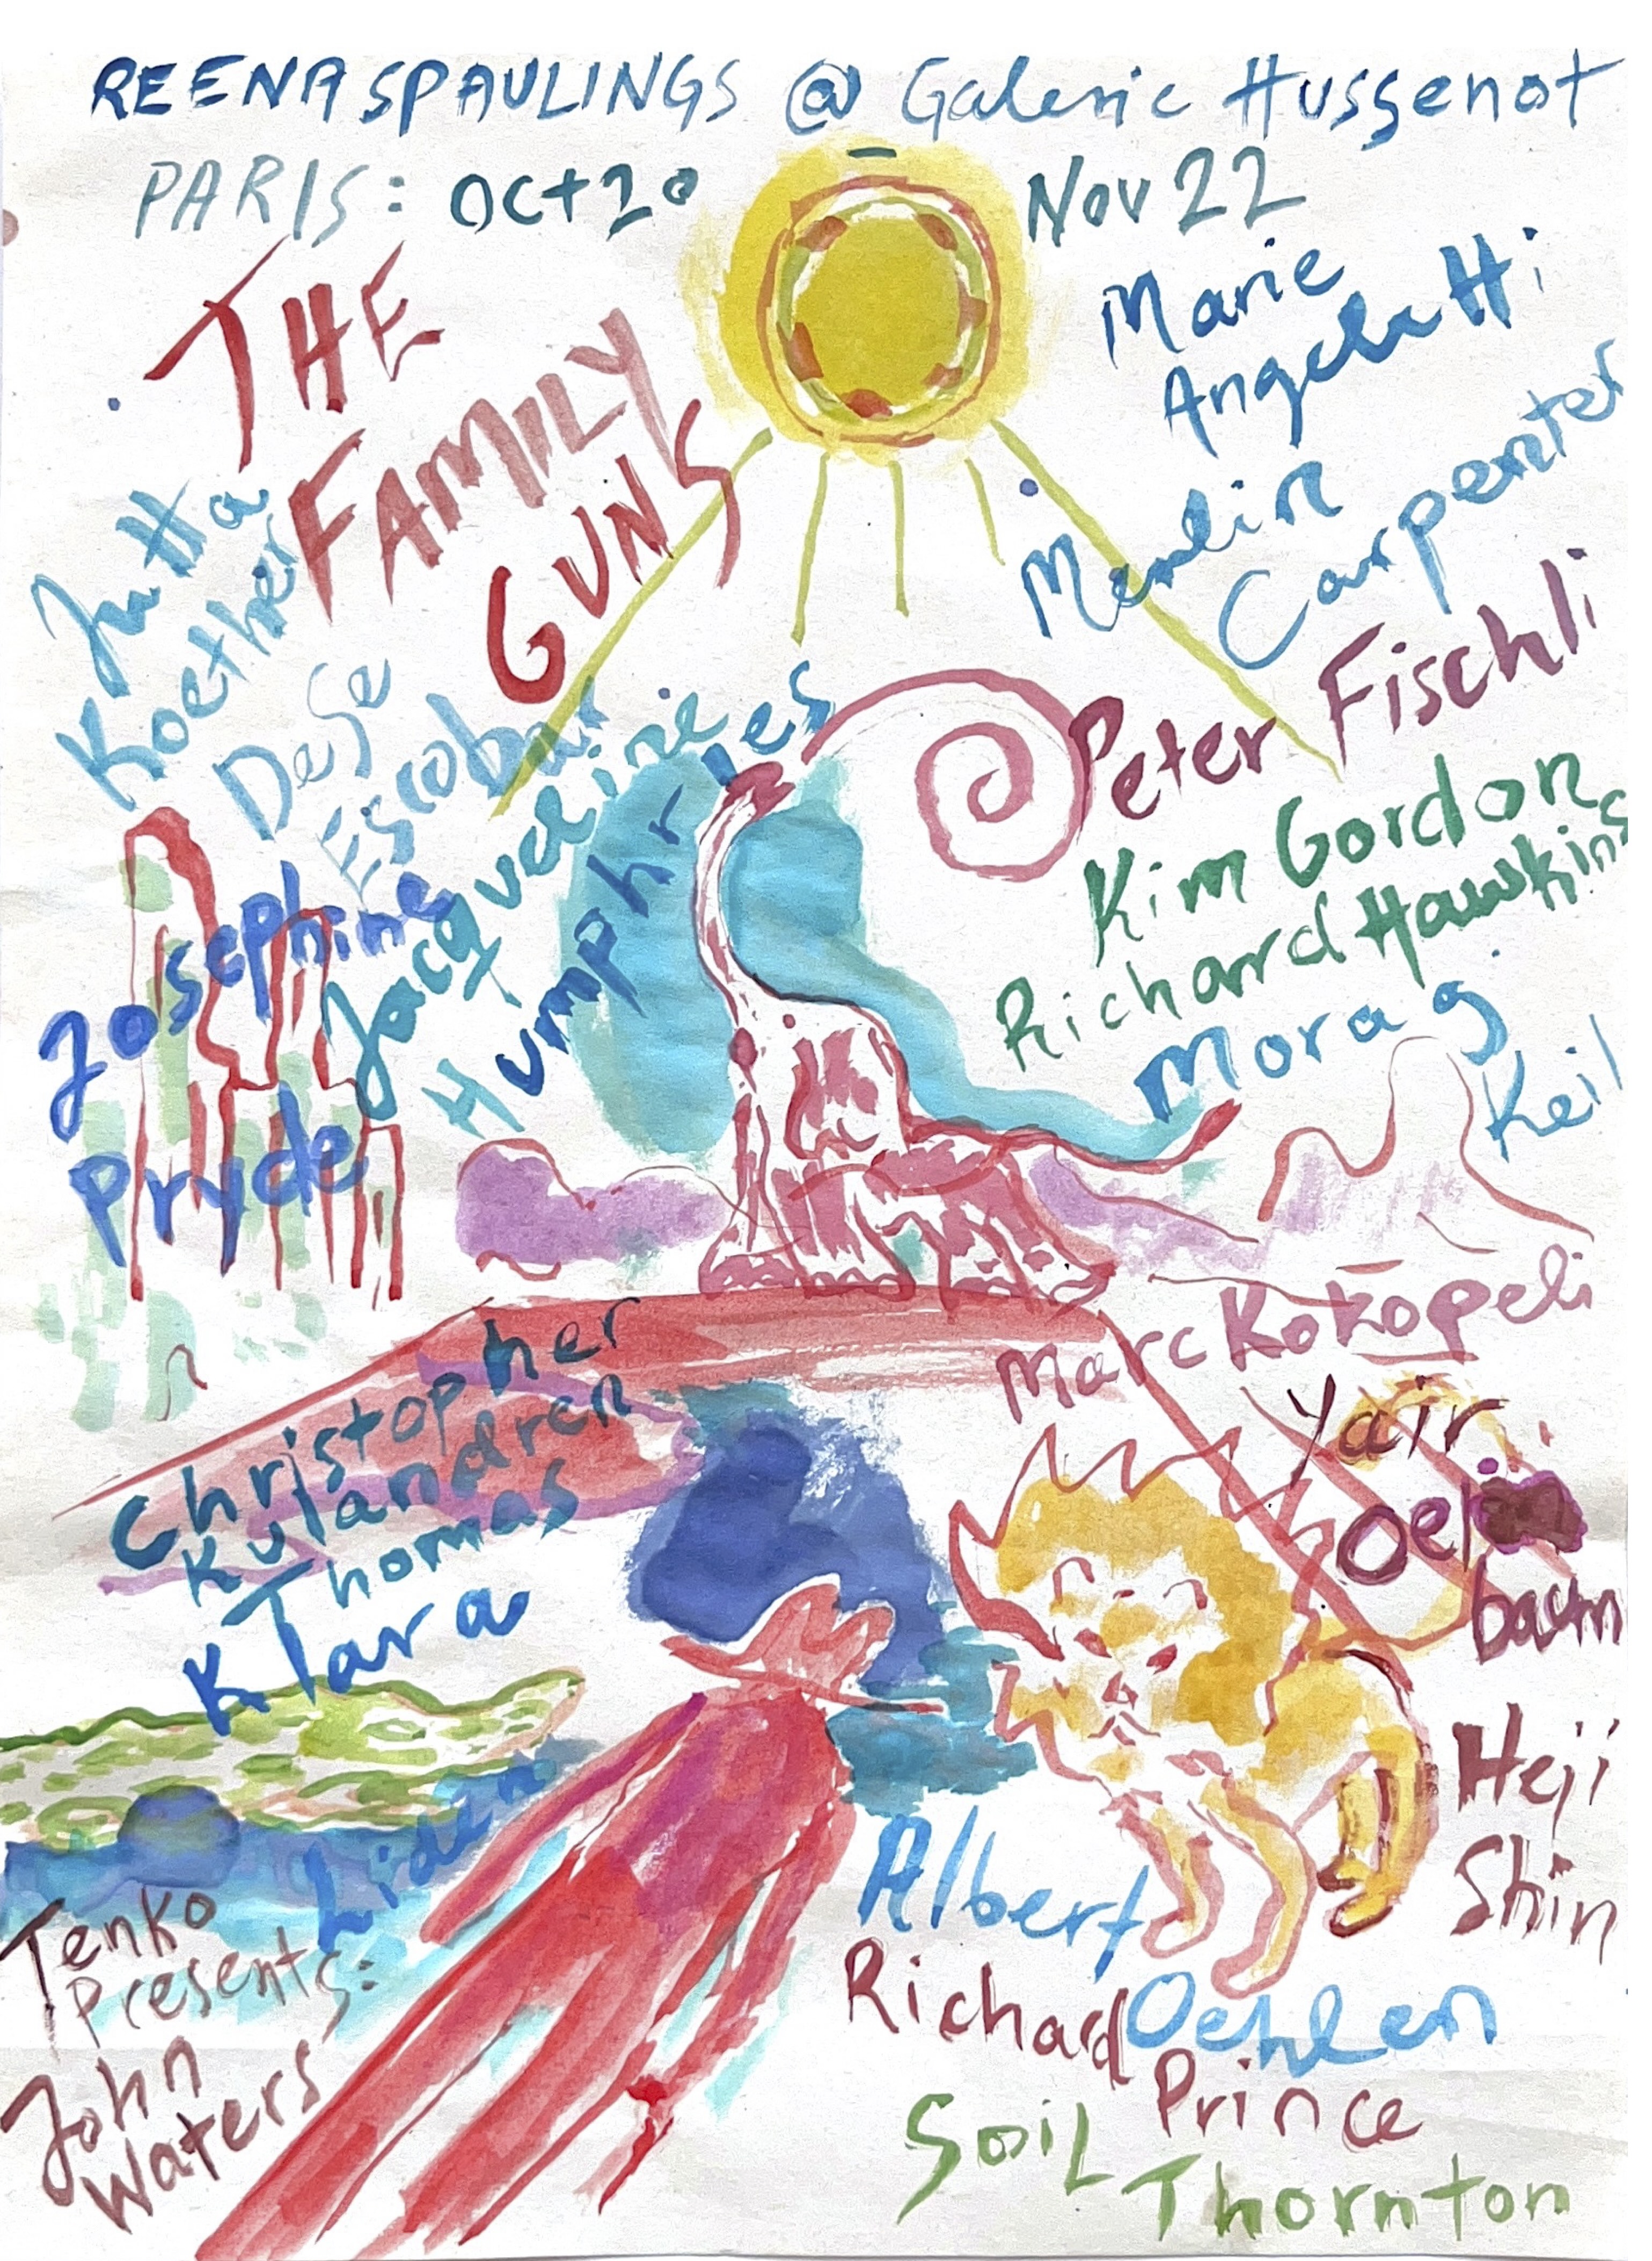 REENA SPAULINGS @ Galerie Hussenot
PARIS: OCT 20 - NOV 22
THE
FAMILY
GUNS
Marie
Angeletti
Merlin
Carpenter
Jutta
Koether
Dese
Escobar
Peter Fischli
Kim Gordon
Richard Hawkins
Morag
Keil
Jacqueline
Humphries
Josephine
Pryde
Marc Kokopeli
Yair
Oelbaum
Christopher
Kulandren
Thomas
Klara
Liden
Heji
Shin
Albert
Oehlen
Tenko
Presents:
John
Waters
Richard
Prince
SoiL
Thornton